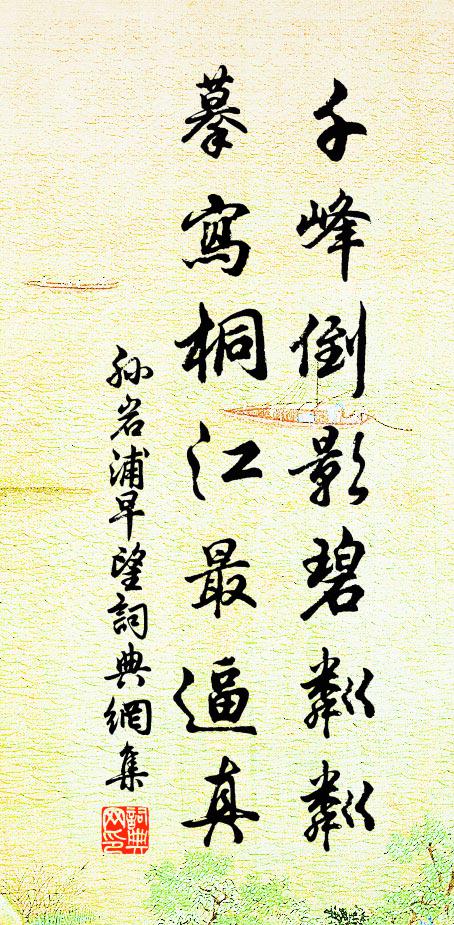 千峰倒影碧粼粼
摹寫桐江最逼真
孙岩浦早望詞典網集
詞典
网印